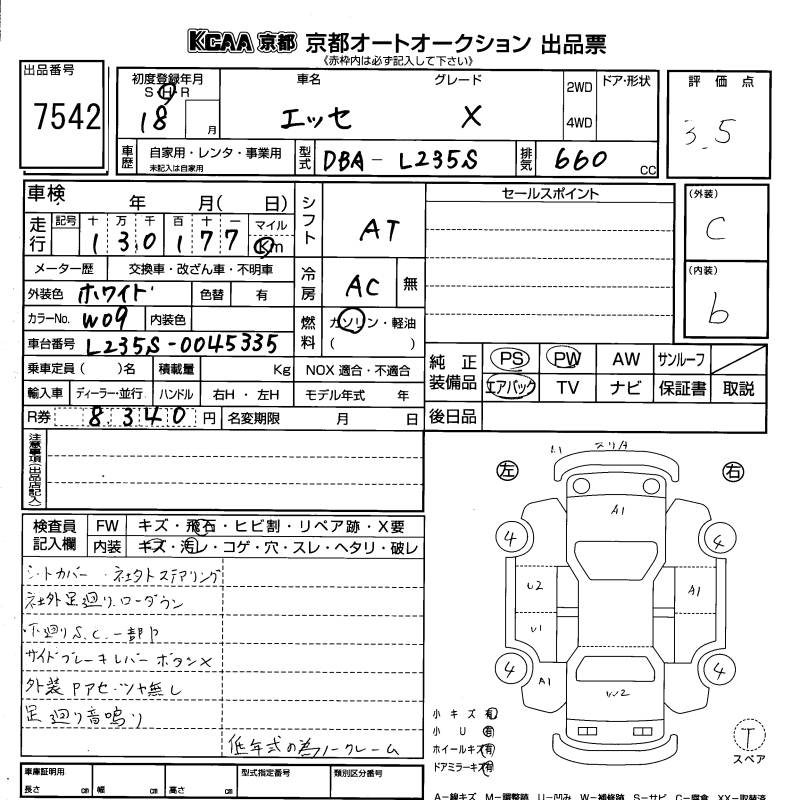 KCAA 京都 京都オートオークション 出品票
《赤枠内は必ず記入して下さい》
出品番号
7542
初度登録年月
S H R
18 月
車名
エッセ
グレード
X
2WD
4WD
ドア・形状
評価点
3.5
車歴
自家用・レンタ・事業用
未記入は自家用
型式
DBA-L235S
排気
660 CC
車検 年 月( 日)
走行
記号 十 万 千 百 十 一 マイル
1 3 0 1 7 7 Km
シフト
AT
セールスポイント
(外装)
C
(内装)
b
メーター歴 交換車・改ざん車・不明車
外装色 ホワイト 色替 有
冷房
AC 無
カラーNo. W09 内装色
燃料
ガソリン・軽油
( )
車台番号 L235S-0045335
乗車定員( )名 積載量 Kg NOX 適合・不適合
輸入車 ディーラー・並行 ハンドル 右H・左H モデル年式 年
R券 8340 円 名変期限 月 日
純正装備品
PS PW AW サンルーフ
エアバック TV ナビ 保証書 取説
後日品
注意事項(出品店記入)
検査員記入欄
FW キズ・飛石・ヒビ割・リペア跡・X要
内装 キズ・汚レ・コゲ・穴・スレ・ヘタリ・破レ
シートカバー・社外ステアリング
社外足廻り、ローダウン
下廻りS.C.一部P
サイドブレーキレバーボタンX
外装Pアセ・ツヤ無し
足廻り音鳴り
低年式の為ノークレーム
左
右
U1 スリキ
A1
4
4
U2
A1
U1
4
4
A1
W2
小キズ 有
小U 有
ホイールキズ 有
ドアミラーキズ 有
T
スペア
車庫証明用
長さ cm 幅 cm 高さ cm
型式指定番号
類別区分番号
A-線キズ M-調整跡 U-凹み W-補修跡 S-サビ C-腐食 XX-取替済